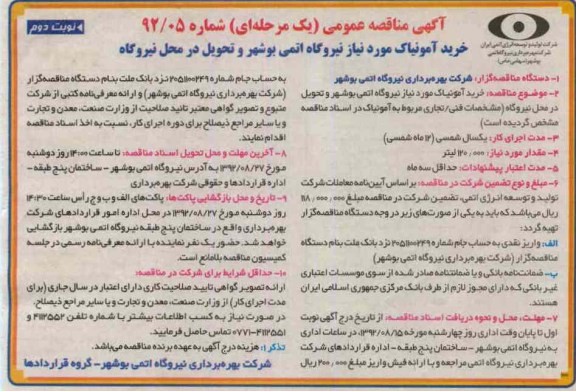 آگهی مناقصه عمومی (یک مرحله‌ای) شماره ۹۲/۰۵
نوبت دوم
خرید آمونیاک مورد نیاز نیروگاه اتمی بوشهر و تحویل در محل نیروگاه
شرکت تولید و توسعه انرژی اتمی ایران
شرکت بهره‌برداری نیروگاه اتمی
۱- دستگاه مناقصه‌گزار: شرکت بهره‌برداری نیروگاه اتمی بوشهر
۲- موضوع مناقصه: خرید آمونیاک مورد نیاز نیروگاه اتمی بوشهر و تحویل
در محل نیروگاه (مشخصات فنی/تجاری مربوط به آمونیاک در اسناد مناقصه
مشخص گردیده است)
۳- مدت اجرای کار: یکسال شمسی (۱۲ ماه شمسی)
۴- مقدار مورد نیاز: ۱۲۰/۰۰۰ لیتر
۵- مدت اعتبار پیشنهادات: حداقل سه ماه
۶- مبلغ و نوع تضمین شرکت در مناقصه: براساس آیین‌نامه معاملات شرکت
تولید و توسعه انرژی اتمی، تضمین شرکت در مناقصه مبلغ ۱۱۸/۰۰۰/۰۰۰
ریال می‌باشد که باید به یکی از صورت‌های زیر در وجه دستگاه مناقصه‌گزار
تهیه گردد:
الف: واریز نقدی به حساب جام شماره ۲۰۵۱۱۰۰۲۴۹ نزد بانک ملت بنام دستگاه
مناقصه‌گزار (شرکت بهره‌برداری نیروگاه اتمی بوشهر)
ب- ضمانتنامه بانکی و یا ضمانتنامه صادر شده از سوی موسسات اعتباری
غیر بانکی که دارای مجوز لازم از طرف بانک مرکزی جمهوری اسلامی ایران
هستند.
۷- مهلت، محل و نحوه دریافت اسناد مناقصه: از تاریخ درج آگهی نوبت
اول تا پایان وقت اداری روز چهارشنبه مورخه ۱۳۹۲/۰۸/۱۵، در ساعات اداری
به نیروگاه اتمی بوشهر - ساختمان پنج طبقه - اداره قراردادهای شرکت
بهره‌برداری نیروگاه اتمی مراجعه و با ارائه فیش واریز مبلغ ۲۰۰/۰۰۰ ریال
به حساب جام شماره ۲۰۵۱۱۰۰۲۴۹ نزد بانک ملت بنام دستگاه مناقصه‌گزار
(شرکت بهره‌برداری نیروگاه اتمی بوشهر) و ارائه معرفی‌نامه کتبی از شرکت
متبوع و تصویر گواهی معتبر تائید صلاحیت از وزارت صنعت، معدن و تجارت
و یا سایر مراجع ذیصلاح برای دوره اجرای کار، نسبت به اخذ اسناد مناقصه
اقدام نمایند.
۸- آخرین مهلت و محل تحویل اسناد مناقصه: تا ساعت ۱۴:۰۰ روز دوشنبه
مورخ ۱۳۹۲/۰۸/۲۷ به آدرس نیروگاه اتمی بوشهر - ساختمان پنج طبقه -
اداره قراردادها و حقوقی شرکت بهره‌برداری
۹- تاریخ و محل بازگشایی پاکت‌ها: پاکت‌های الف و ب و ج رأس ساعت ۱۴:۳۰
روز دوشنبه مورخ ۱۳۹۲/۰۸/۲۷ در محل اداره امور قراردادهای شرکت
بهره‌برداری واقع در ساختمان پنج طبقه نیروگاه اتمی بوشهر بازگشایی
خواهد شد. حضور یک نفر نماینده با ارائه معرفی‌نامه رسمی در جلسه
کمیسیون مناقصه بلامانع است.
۱۰- حداقل شرایط برای شرکت در مناقصه:
ارائه تصویر گواهی تایید صلاحیت کاری دارای اعتبار در سال جاری (برای
مدت اجرای کار) از وزارت صنعت، معدن و تجارت و یا سایر مراجع ذیصلاح.
در صورت نیاز به کسب اطلاعات بیشتر با شماره تلفن ۴۱۱۲۵۵۲ و
۰۷۷۱-۴۱۱۲۵۵۱ تماس حاصل فرمایید.
تذکر: هزینه درج آگهی به عهده برنده مناقصه می‌باشد.
شرکت بهره‌برداری نیروگاه اتمی بوشهر- گروه قراردادها